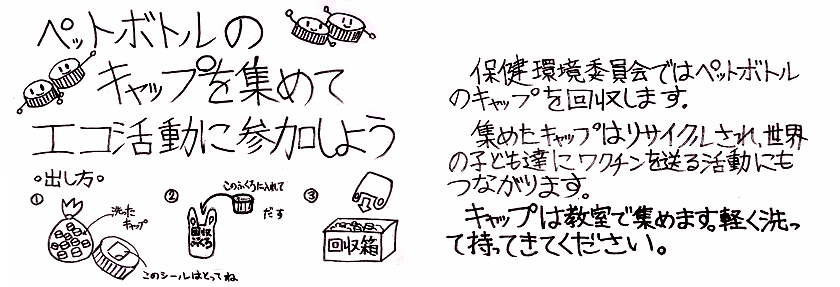 ペットボトルの
キャップを集めて
エコ活動に参加しよう
○出し方○
①
洗った
キャップ
このシールはとってね
②
このふくろに入れて
だす
回収
ふくろ
③
回収箱
保健環境委員会ではペットボトル
のキャップを回収します。
集めたキャップはリサイクルされ、世界
の子ども達にワクチンを送る活動にも
つながります。
キャップは教室で集めます。軽く洗っ
て持ってきてください。